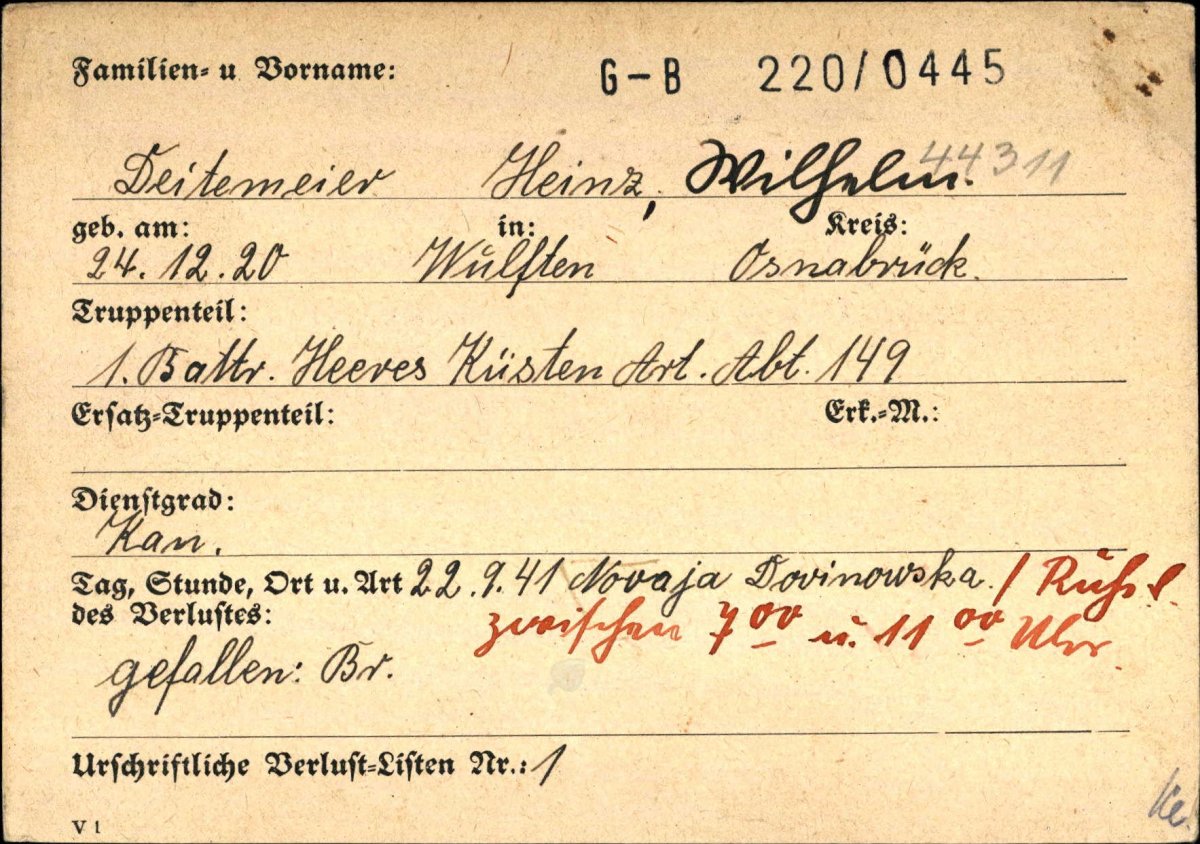 Familien- u Vorname: G-B 220/0445
Deitemeier Heinz, Wilhelm. 44311
geb. am: in: Kreis:
24. 12. 20 Wulften Osnabrück.
Truppenteil:
1. Battr. Heeres Küsten Art. Abt. 149
Ersatz-Truppenteil: Erk.-M.:
Dienstgrad:
Kan.
Tag, Stunde, Ort u. Art 22.9.41 Novaja Dovinowska. /
des Verlustes: zwischen 7 00 u. 11 00 Uhr.
gefallen: Br.
Urschriftliche Verlust-Listen Nr.: 1
V 1